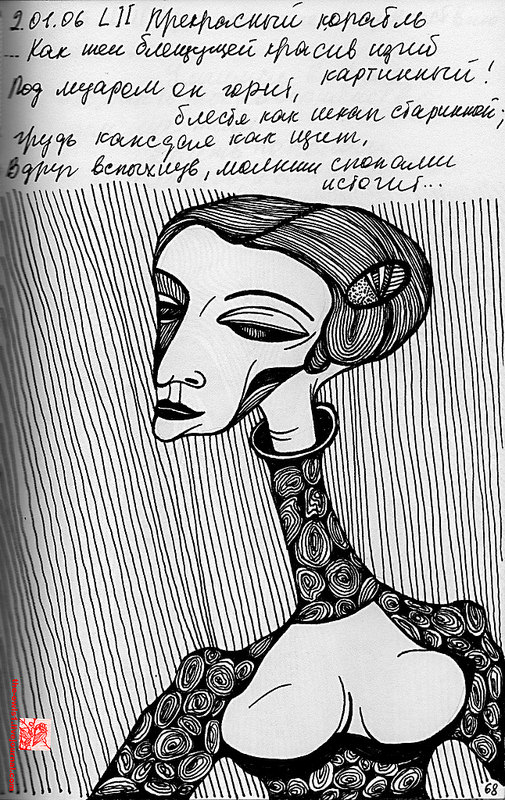 2.01.06 LII Прекрасный корабль
... Как шеи блещущей красив изгиб
картинный!
Под муаром он горит,
блестя как шкап старинной;
грудь каждая как щит,
Вдруг вспыхнув, молнии снопами
источит...
68